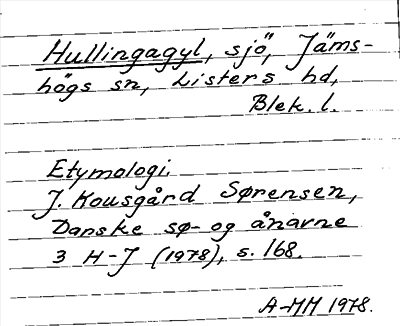 Hullingagyl, sjö, Jäms-
högs sn, Listers hd,
Blek. l.
Etymologi.
J. Kousgård Sørensen,
Danske sø- og ånavne
3 H-J (1978), s. 168.
A-MM 1978.